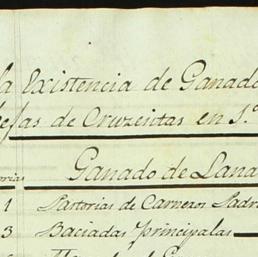 la Existencia de Ganado
de Cruzentas en
Ganado de Lana
1 Pastorias de Carneros Padr
3 Baciadas principales